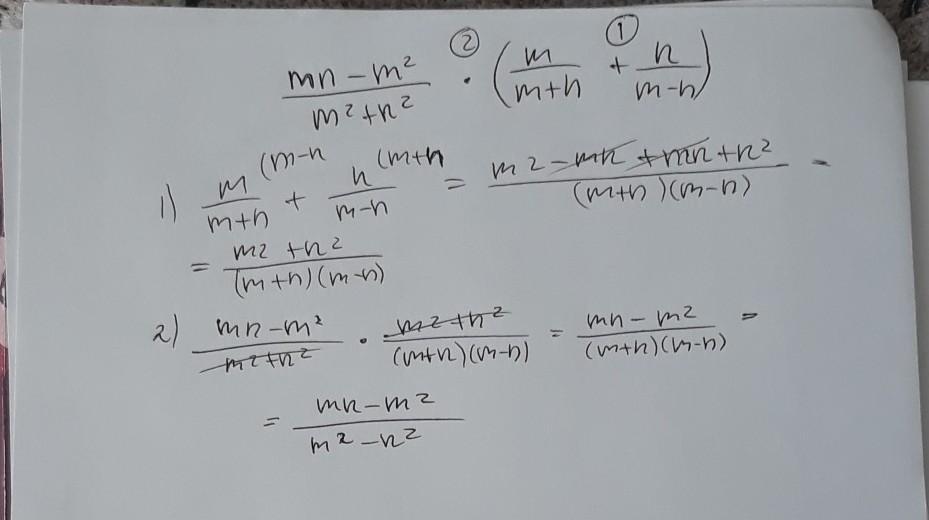 ② ①
(mn - m²)/(m² + n²) · (m/(m+n) + n/(m-n))
1) m (m-n/(m+n) + n (m+n/(m-n) = (m2 - mn + mn + n²)/((m+n)(m-n)) =
= (m2 + n2)/((m+n)(m-n))
2) (mn - m²)/(m2+n2) · (m2+n2)/((m+n)(m-n)) = (mn - m2)/((m+n)(m-n)) =
= (mn - m2)/(m2 - n2)